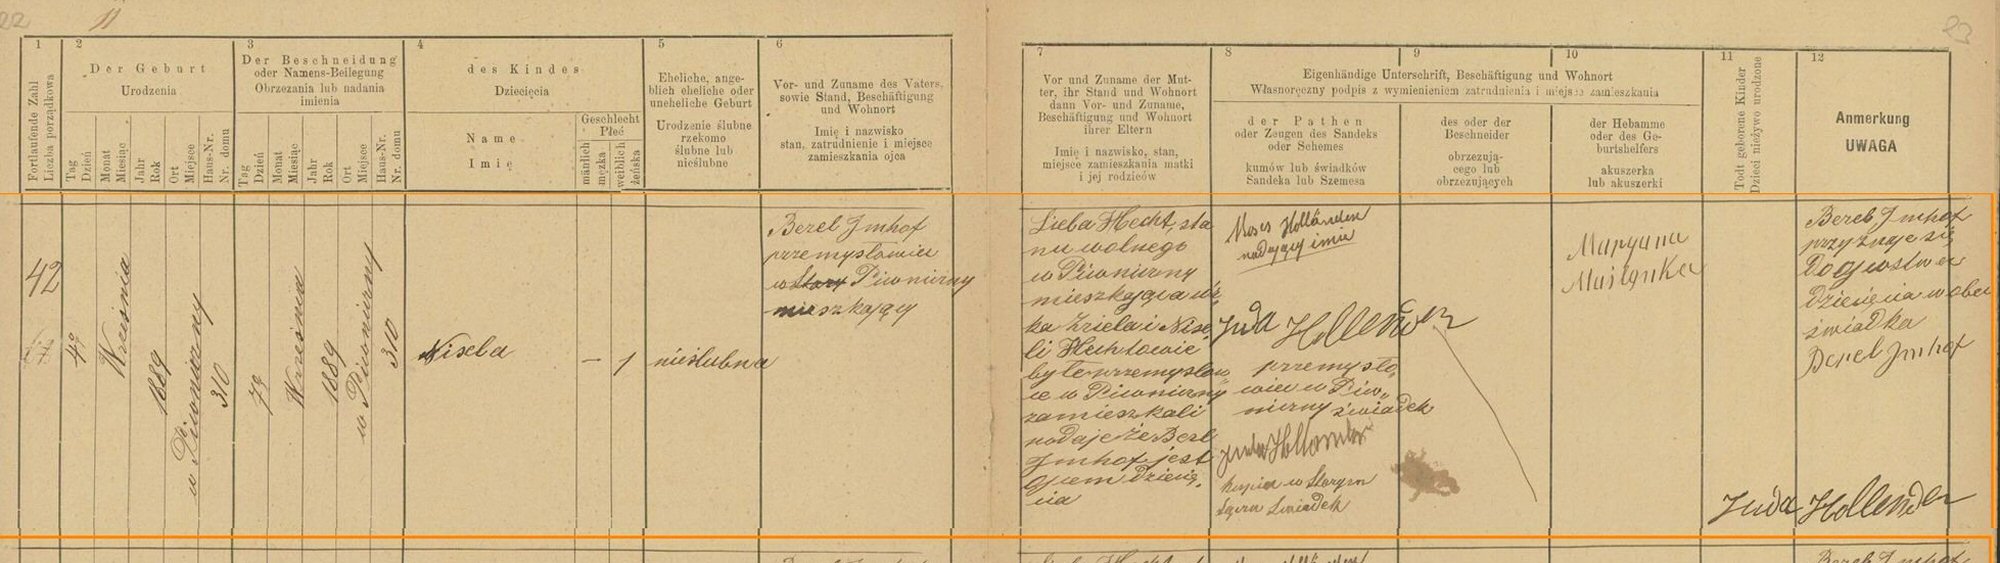 22
11
23
1
Fortlaufende Zahl
Liczba porządkowa
2
Der Geburt
Urodzenia
Tag
Dzień
Monat
Miesiąc
Jahr
Rok
Ort
Miejsce
Haus-Nr.
Nr. domu
3
Der Beschneidung
oder Namens-Beilegung
Obrzezania lub nadania
imienia
Tag
Dzień
Monat
Miesiąc
Jahr
Rok
Ort
Miejsce
Haus-Nr.
Nr. domu
4
des Kindes
Dziecięcia
Name
Imię
Geschlecht
Płeć
männlich
męzka
weiblich
żeńska
5
Eheliche, ange-
blich eheliche oder
uneheliche Geburt
Urodzenie ślubne
rzekomo
ślubne lub
nieślubne
6
Vor- und Zuname des Vaters,
sowie Stand, Beschäftigung
und Wohnort
Imię i nazwisko
stan, zatrudnienie i miejsce
zamieszkania ojca
7
Vor und Zuname der Mut-
ter, ihr Stand und Wohnort
dann Vor- und Zuname,
Beschäftigung und Wohnort
ihrer Eltern
Imię i nazwisko, stan,
miejsce zamieszkania matki
i jej rodziców
8
9
10
Eigenhändige Unterschrift, Beschäftigung und Wohnort
Własnoręczny podpis z wymienieniem zatrudnienia i miejsca zamieszkania
der Pathen
oder Zeugen des Sandeks
oder Schemes
kumów lub świadków
Sandeka lub Szemesa
des oder der
Beschneider
obrzezują-
cego lub
obrzezujących
der Hebamme
oder des Ge-
burtshelfers
akuszerka
lub akuszerki
11
Todt geborene Kinder
Dzieci nieżywo urodzone
12
Anmerkung
UWAGA
42
4
Września
1889
w Piwniczny
310
7
Września
1889
w Piwniczny
310
Nisela
— 1
nieślubna
Berel Imhof
przemysłowiec
w Stary Piwniczny
mieszkający
Lieba Hecht, sta
nu wolnego
w Piwniczny
mieszkająca
li Hechtowie
w Piwniczny
zamieszkali
podaje że Berl
Imhof jest
ojcem dzieię,
cia
Moses Holländer
nadający imie
Juda Hollender
przemysło,
wiec w Piw,,
niczny świadek
Juda Hollander
kupiec w Starym
Sączu świadek
Maryana
Berel Imhof
przyznaje się
do ojcostwa
dziecięcia w obec
świadka
Berel Imhof
Juda Hollender